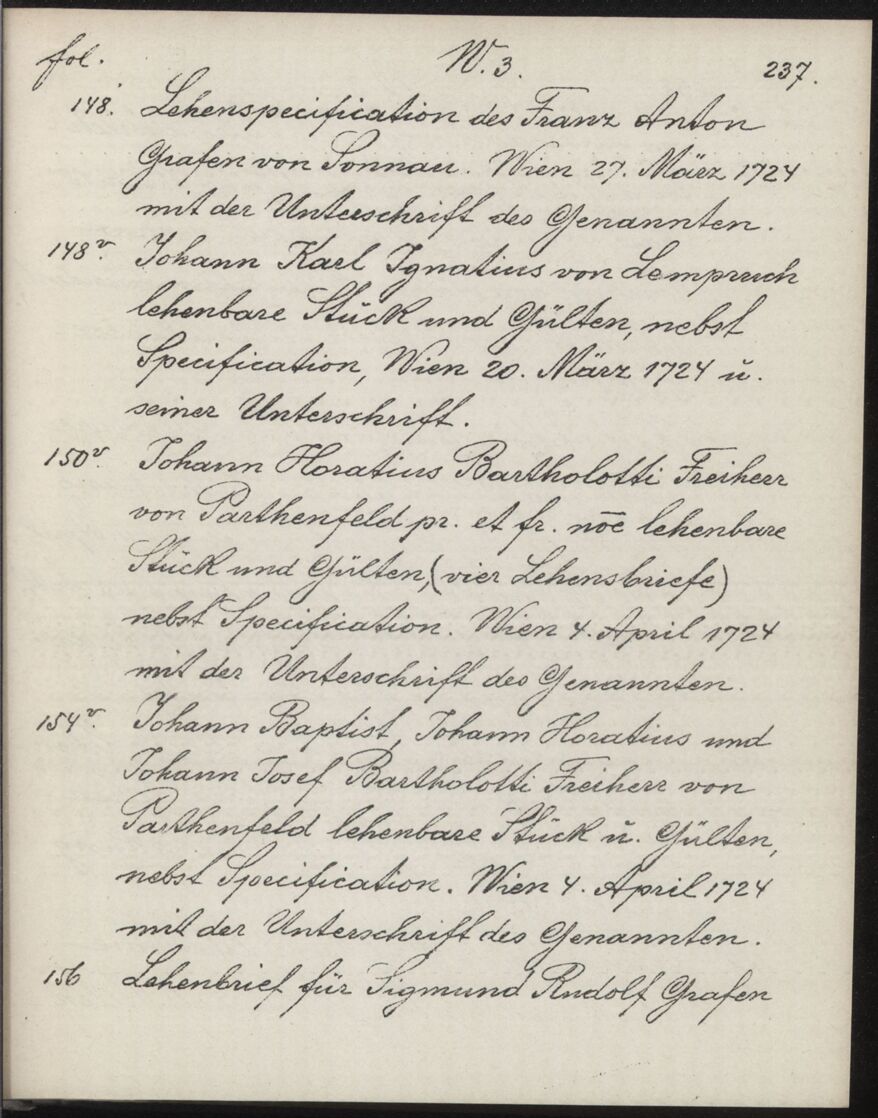 fol. W. 3. 237.
148. Lehenspecification des Franz Anton
Grafen von Sonnau. Wien 27. März 1724
mit der Unterschrift des Genannten.
148v. Johann Karl Ignatius von Lempruch
lehenbare Stück und Gülten, nebst
Specification, Wien 20. März 1724 u.
seiner Unterschrift.
150v. Johann Horatius Bartholotti Freiherr
von Parthenfeld pr. et fr. noē lehenbare
Stück und Gülten, (vier Lehensbriefe)
nebst Specification. Wien 4. April 1724
mit der Unterschrift des Genannten.
154v. Johann Baptist, Johann Horatius und
Johann Josef Bartholotti Freiherr von
Parthenfeld lehenbare Stück u. Gülten,
nebst Specification. Wien 4. April 1724
mit der Unterschrift des Genannten.
156 Lehenbrief für Sigmund Rudolf Grafen